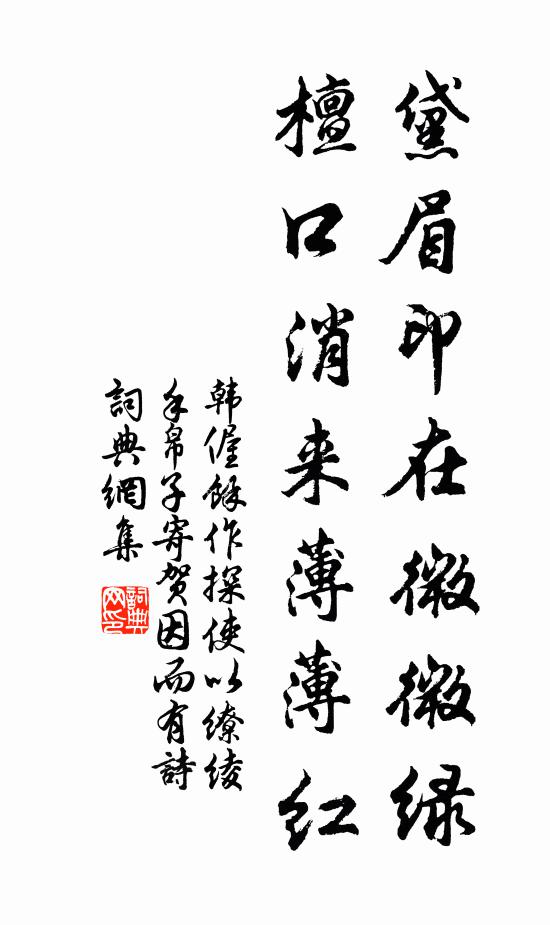 黛眉印在微微绿
檀口消来薄薄红
韩偓馀作探使以缭绫
手帛子寄贺因而有诗
詞典網集
詞典網印